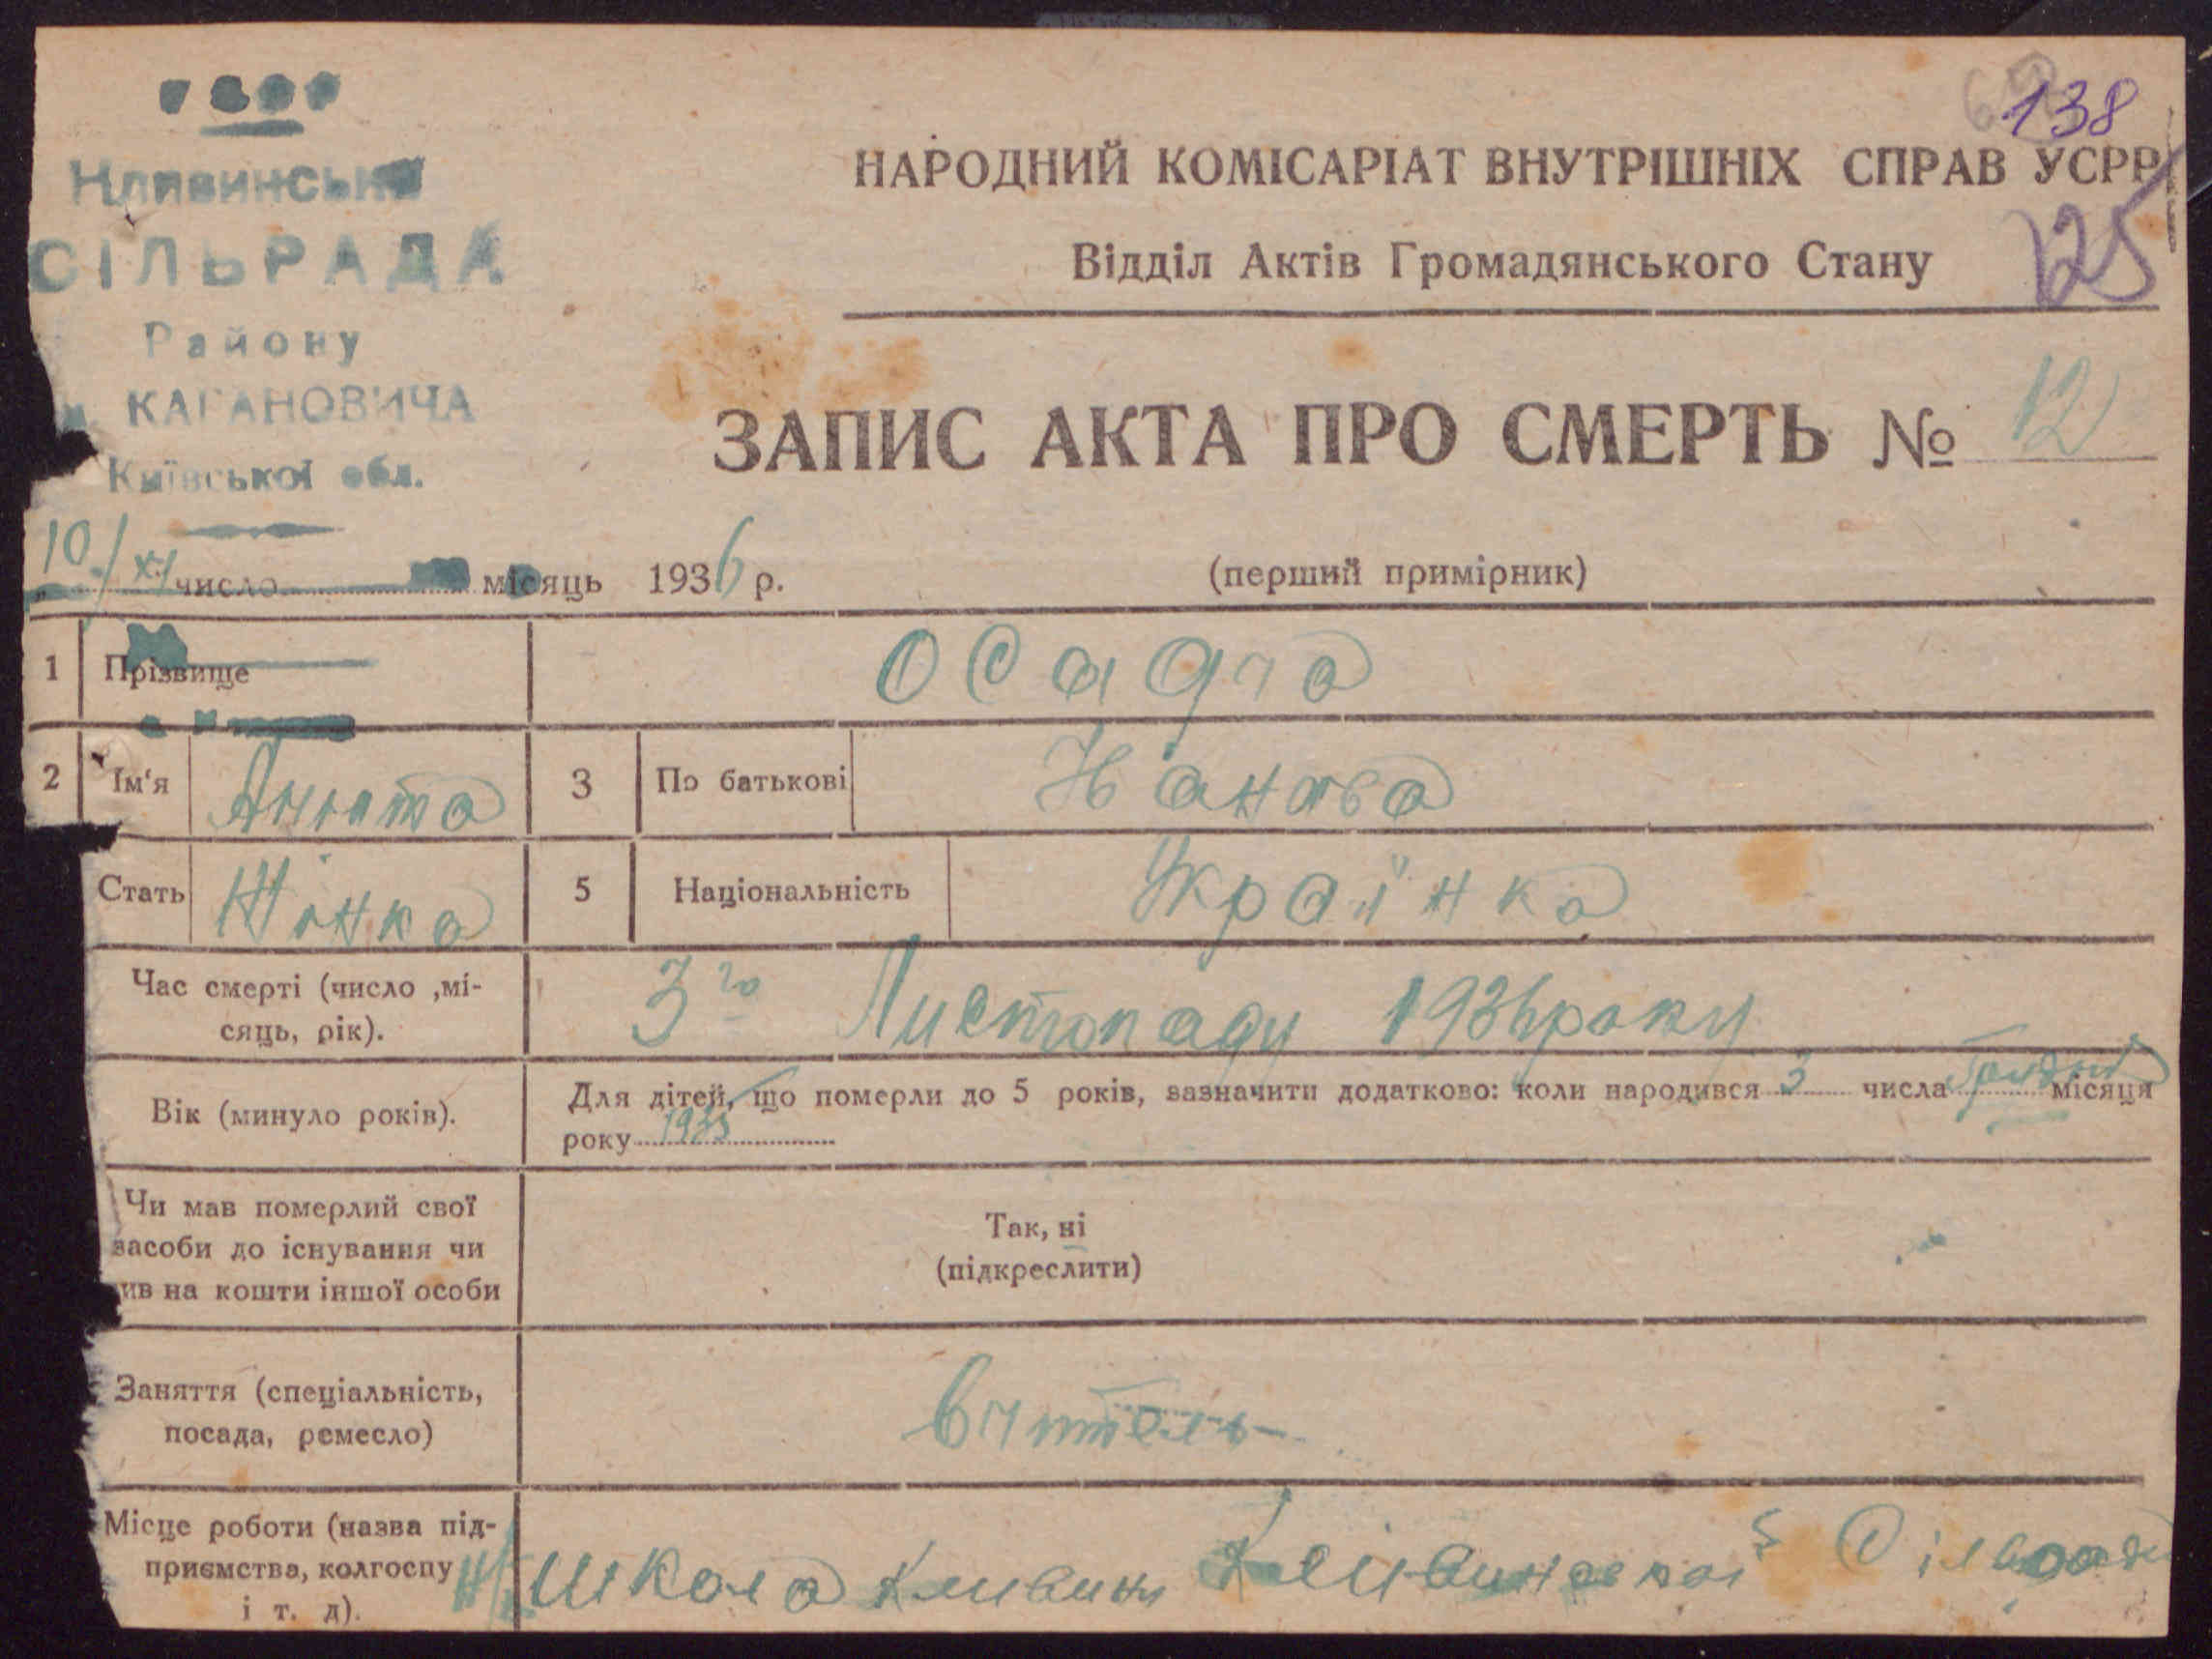 138
НАРОДНИЙ КОМІСАРІАТ ВНУТРІШНІХ СПРАВ УСРР
125
Відділ Актів Громадянського Стану
УСРР
Кливинська
СІЛЬРАДА
Району
КАГАНОВИЧА
Київської обл.
ЗАПИС АКТА ПРО СМЕРТЬ № 12
10/XI число місяць 1936 р.
(перший примірник)
1 Прізвище Осадча
2 Ім'я Анюта 3 По батькові
Стать Жінка 5 Національність Українка
Час смерті (число ,мі-
сяць, рік).
3го Листопаду 1936 року
Вік (минуло років).
Для дітей, що померли до 5 років, зазначити додатково: коли народився 3 числа Грудня місяця
року 1935
Чи мав померлий свої
засоби до існування чи
ив на кошти іншої особи
Так, ні
(підкреслити)
Заняття (спеціальність,
посада, ремесло)
вчитель
Місце роботи (назва під-
приємства, колгоспу
і т. д).
Школа Кливини Кливинської Сілради